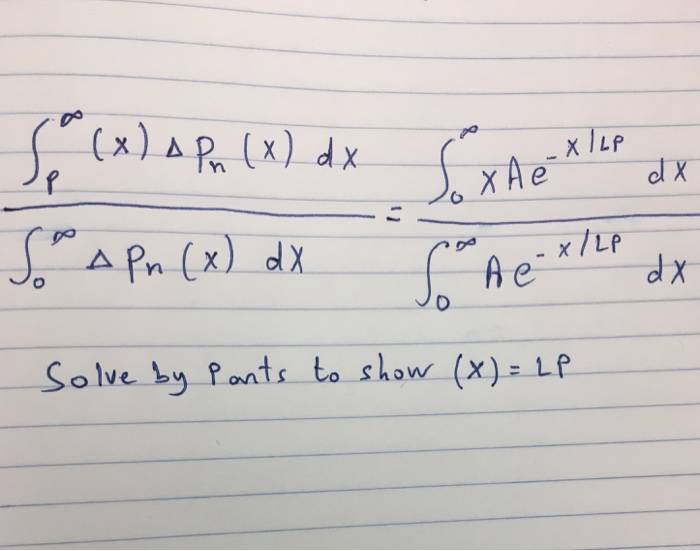 ∫_p^∞ (x) Δ Pn (x) dx / ∫_0^∞ Δ Pn (x) dx = ∫_0^∞ x A e^(-x/LP) dx / ∫_0^∞ A e^(-x/LP) dx
Solve by Parts to show (x) = LP